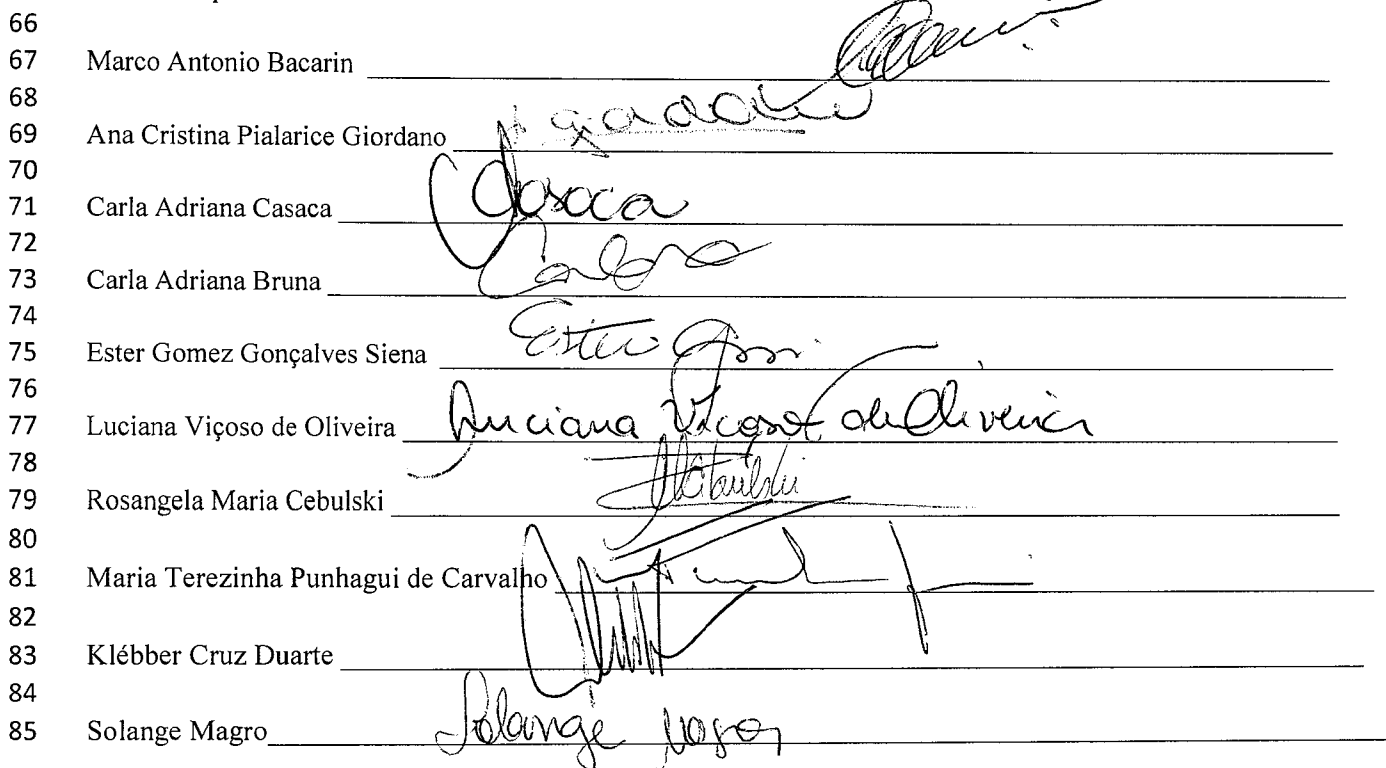 66
67 Marco Antonio Bacarin
68
69 Ana Cristina Pialarice Giordano
70
71 Carla Adriana Casaca Casaca
72
73 Carla Adriana Bruna
74
75 Ester Gomez Gonçalves Siena Ester
76
77 Luciana Viçoso de Oliveira Luciana Viçoso de Oliveira
78
79 Rosangela Maria Cebulski
80
81 Maria Terezinha Punhagui de Carvalho
82
83 Klébber Cruz Duarte
84
85 Solange Magro Solange Magro